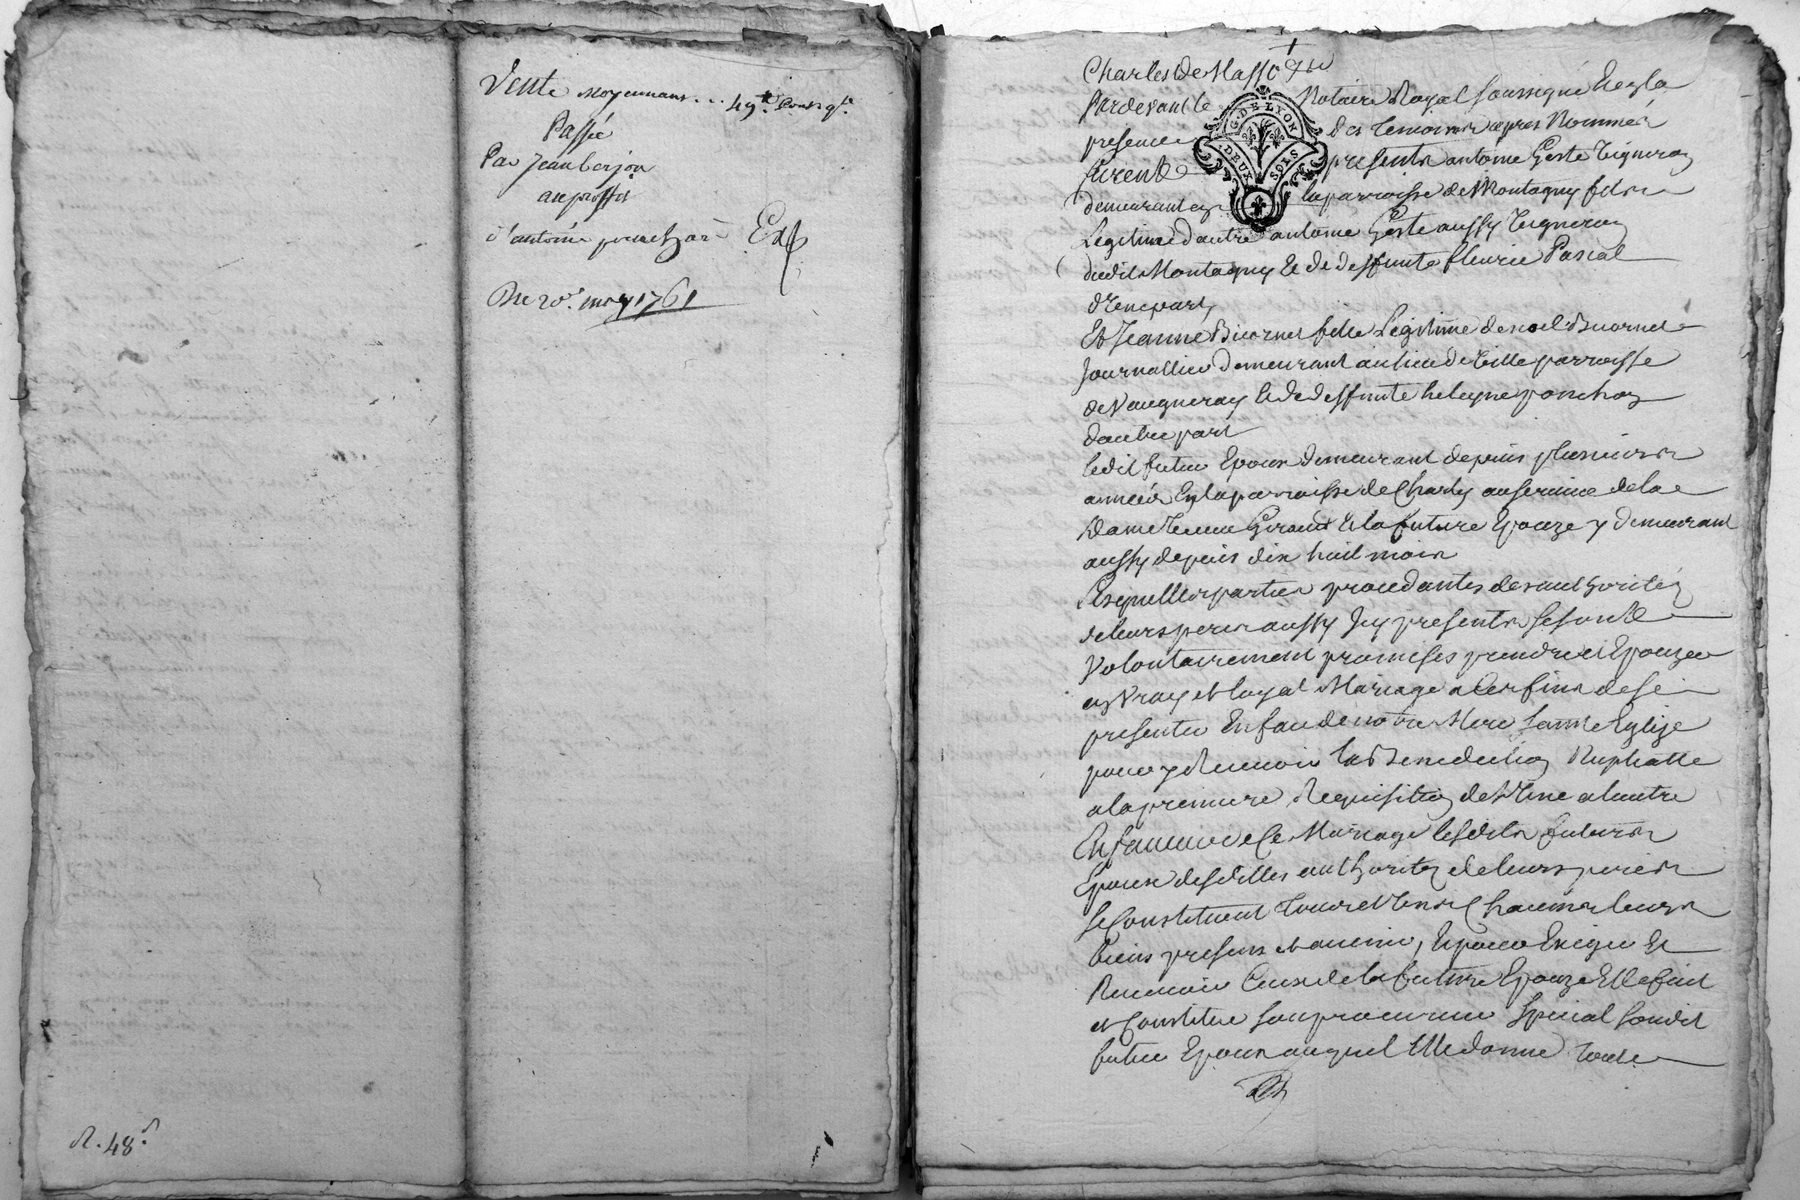 Vente moyennant .. 49# Cour. q.te
Passée
Par Jean berjon
au proffit
d'antoine ponchon Exp
Du 20e may 1761
R. 48 s
Charles de Masso
G. DE LYON
DEUX SOLS
Pardevant le Notaire Royal soussigné Et en la
presence des temoins apres Nommés
furent presents antoine Geste vigneron
demeurant en la parroisse de Montagny fils
Legitime d'autre antoine Geste aussy vigneron
dudit Montagny Et de deffunte fleurie Pascal
d'Une part,
Et Jeanne Biornet fille Legitime de noel Buornet
Journallier demeurant au lieu de ville parroisse
de Vaugneray Et de deffunte heleyne ponchon
d'autre part
ledit futur Epoux demeurant depuis plusieurs
années En la parroisse de Charly au service de la
Dame Giraud Et la future Epouze y demeurant
aussy depuis dix huit mois
Lesquelles parties procedantes des authorités
de leurs peres aussy Icy presents se sont
Volontairement promises prendre et Epouzer
en Vray et loyal Mariage a Ces fins de se
presenter En face de notre Mere sainte Eglize
pour y Recevoir la Benediction Nuptialle
a la premiere Requisition de l'Une a l'autre
En faveur de Ce Mariage lesdits futurs
Epoux desdittes authorités de leurs peres
se Constituent tous et Uns Chacuns leurs
biens presens et avenir, Et pour Exiger Et
Recevoir Ceux de la future Epouze Elle fait
et Constitue son procureur special sondit
futur Epoux auquel Elle donne toute